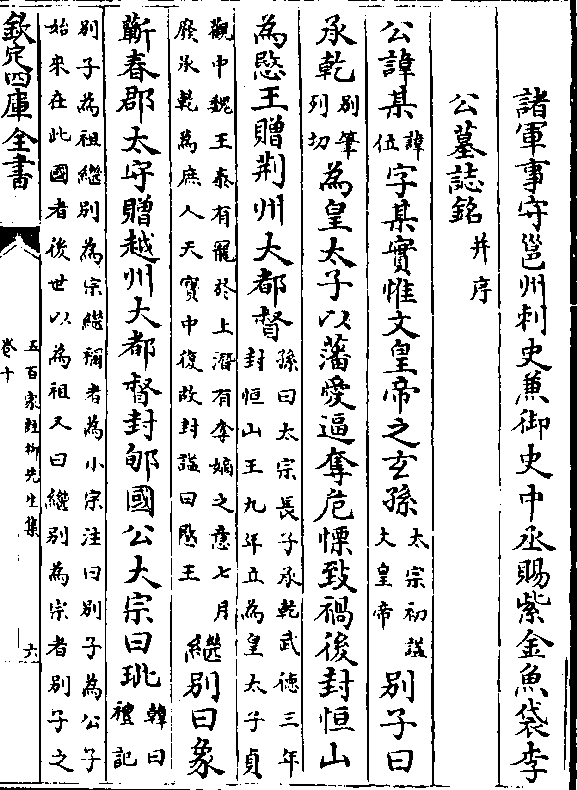 諸軍事守邕州刺史兼御史中丞賜紫金魚袋李
公墓誌銘 并序
公諱某 諱位 字某實惟文皇帝之玄孫 太宗初諡文皇帝 別子曰
承乾 別筆列切 為皇太子以藩愛逼奪危慄致禍後封恒山
為愍王贈荆州大都督 孫曰太宗長子承乾武徳三年
封恒山王九年立為皇太子貞
觀中魏王泰有寵於上潛有奪嫡之意七月
廢承乾為庶人天寳中復故封諡曰愍王 繼別曰象
蘄春郡太守贈越州大都督封郇國公大宗曰玭 韓曰禮記
別子為祖繼別為宗繼禰者為小宗注曰別子為公子
始來在此國者後世以為祖又曰繼別為宗者別子之
欽定四庫全書
五百家註柳先生集
卷十
六